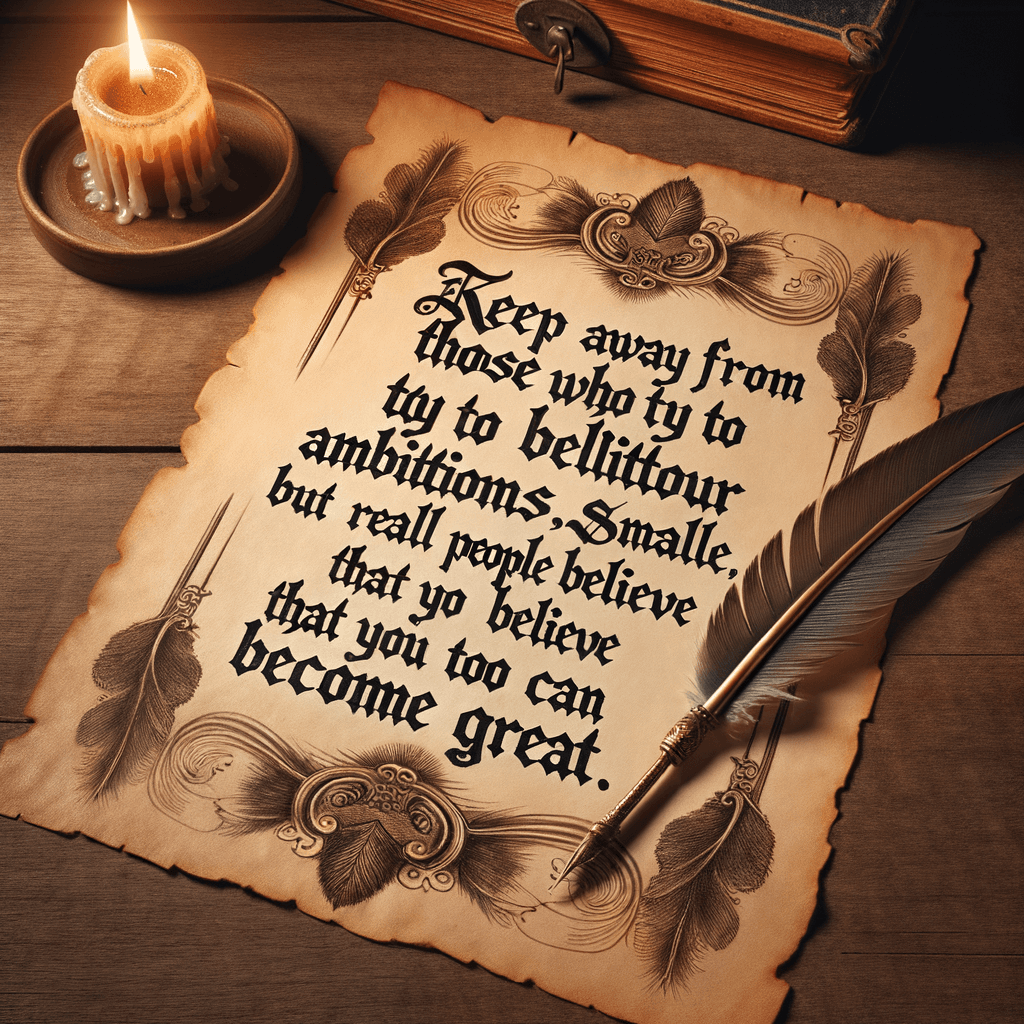 Keep away from
those who ty to
tty to bellittour
ambittioms, Smalle,
but reall people believe
that yo believe
that you too can
beconme great.